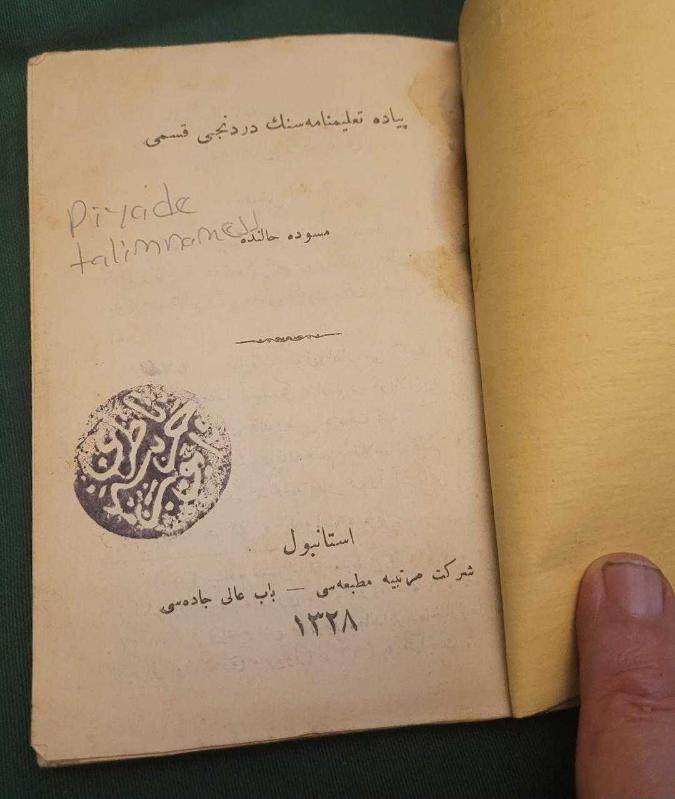 پیاده تعلیمنامه‌سنك دردنجی قسمی
Piyade
talimnamesi
مسوده حالنده
استانبول
شركت مرتبیه مطبعه‌سی — باب عالی جاده‌سی
١٣٢٨